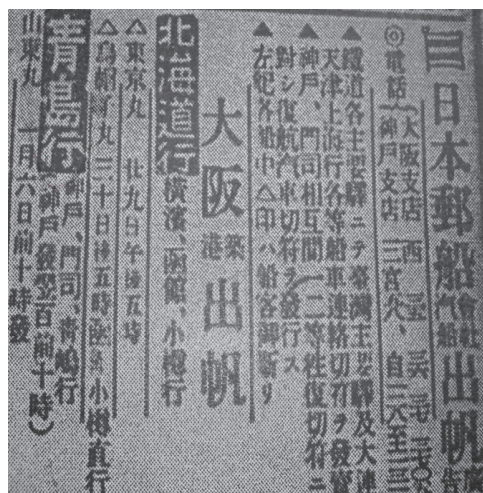 日本郵船會社汽船出帆廣告
◎電話(大阪支店 西
神戸支店 三宮
▲鐵道各主要驛ニテ臺灣主要驛及大連
天津上海行各等船車連絡切符ヲ發賣
▲神戸、門司相互間(一二等往復切符ニ
對シ復航汽車切符ヲ發行ス
▲左記各船中△印ハ船客御斷リ
大阪築港出帆
北海道行 横濱、函館、小樽行
△東京丸 廿九日午後五時
△烏帽子丸 三十日後五時 小樽直行
青島行 神戸、門司、青嶋行
(神戸發翌日前十時)
山東丸 一月六日前十時發